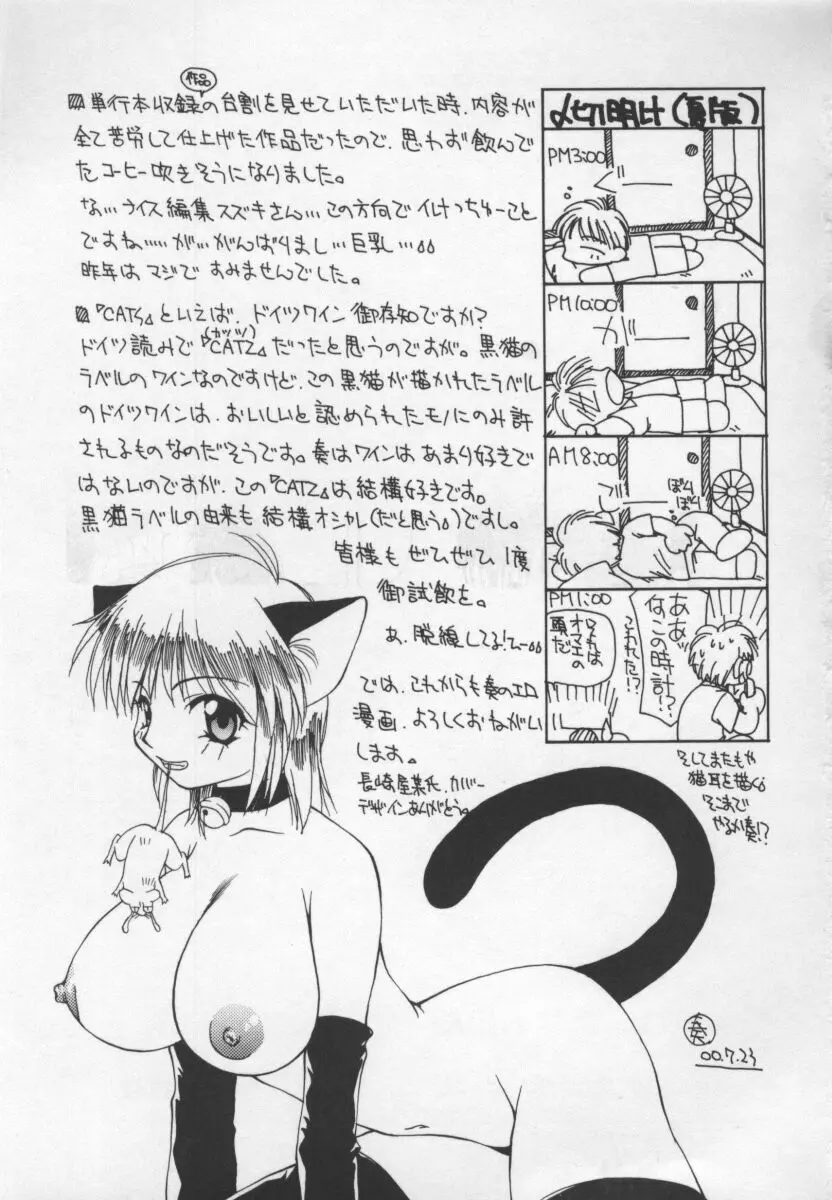 作品
▨単行本収録の台割を見せていただいた時、内容が
全て苦労して仕上げた作品だったので、思わず飲んで
たコーヒー吹きそうになりました。
な…ライス編集スズキさん…この方向でイけっちゅーこと
ですね……が…がんばりまし…巨乳…
昨年はマジですみませんでした。
▨『CATS』といえば、ドイツワイン御存知ですか?
(カッツ)
ドイツ読みで『CATZ』だったと思うのですが。黒猫の
ラベルのワインなのですけど、この黒猫が描かれたラベル
のドイツワインは、おいしいと認められたモノにのみ許
されるものなのだそうです。奏はワインはあまり好きで
はないのですが、この『CATZ』は結構好きです。
黒猫ラベルの由来も結構オシャレ(だと思う。)ですし。
皆様もぜひぜひ1度
御試飲を。
あ、脱線してる!てー
では、これからも奏のエロ
漫画、よろしくおねがい
します。
長崎屋葉氏、カバー
デザインありがとう。
〆切明け(夏版)
PM3:00
PM10:00
が
AM8:00
ぼり
ぼり
PM1:00
ああッ
何この時計!?
こわれた!?
オマエの
頭だ
そしてまたもや
猫耳を描く
そこまで
やるか奏!?
奏
00.7.23